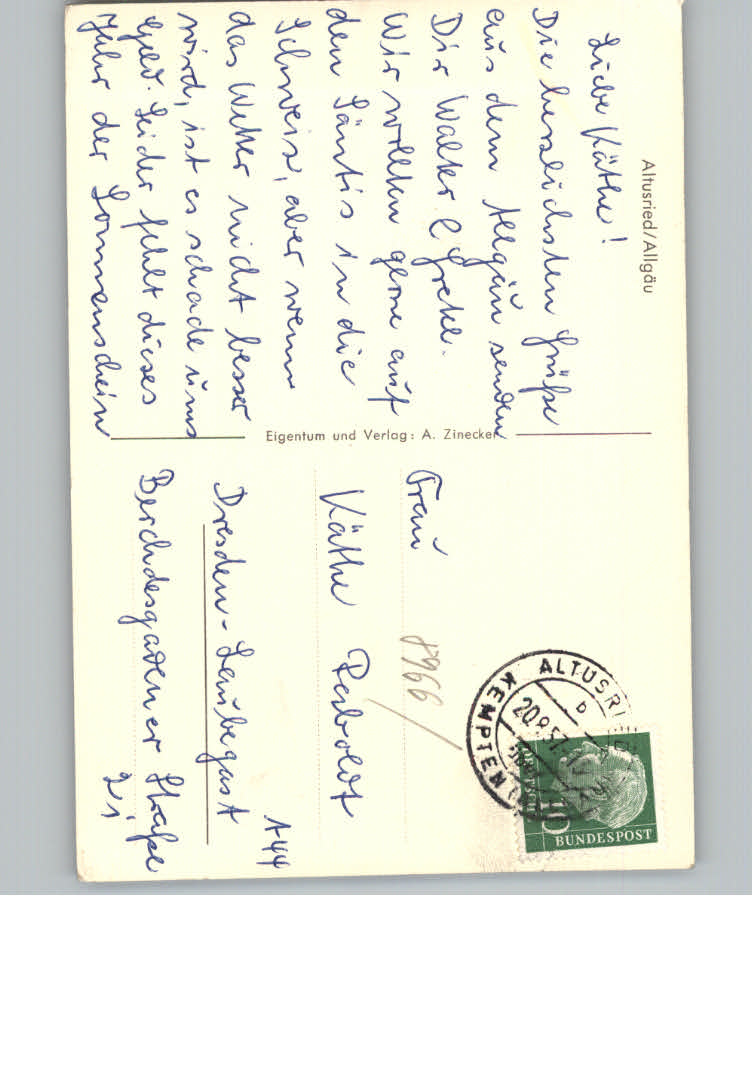 Altusried/Allgäu
Liebe Käthe!
Die herzlichsten Grüße
aus dem Allgäu senden
Dir Walter & Gretel.
Wir wollten gerne auf
den Säntis in die
Schweiz, aber wenn
das Wetter nicht besser
wird, ist es schade ums
Geld. Leider fehlt dieses
Jahr der Sonnenschein
Eigentum und Verlag: A. Zinecker
Frau
Käthe
Dresden-Laubegast
A 44
Berchdesgadener Straße
8966
ALTUSRI
b
20.8.57
KEMPTEN
10
DEUTSCHE
BUNDESPOST